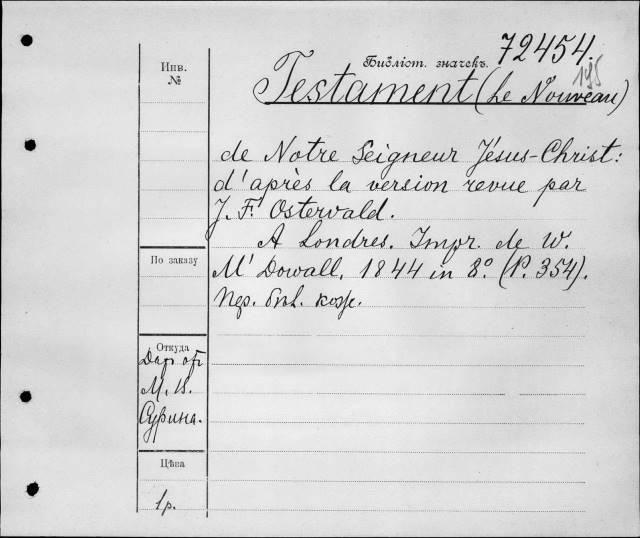 Инв.
№
Библіот. значекъ. 72454.
195
Testament (Le Nouveau)
de Notre Seigneur Jésus-Christ:
d'après la version revue par
J. F. Ostervald.
A Londres. Impr. de W.
M' Dowall, 1844 in 8.º (P. 354).
По заказу
Откуда
Даръ отъ
М. В.
Сурина.
Цѣна
1р.